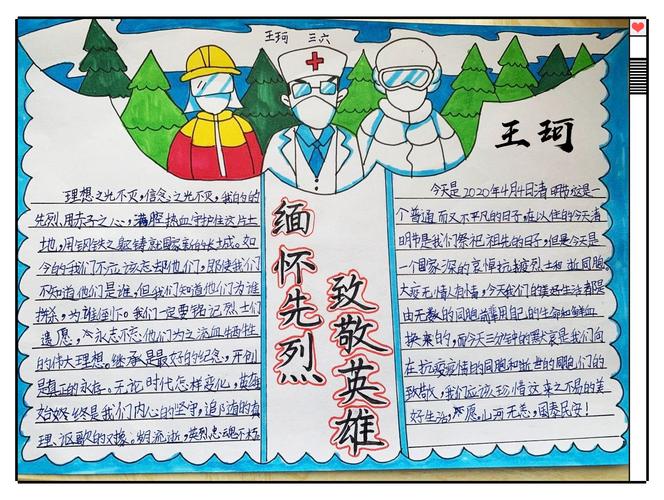 王珂 三六
王珂
缅怀先烈
致敬英雄
理想之光不灭,信念之光不灭,我们的
先烈,用赤子之心,满腔热血守护住这片土
地,用钢铁之躯铸就国家的长城。如
今的我们不应该忘却他们,即使我们
不知道他们是谁,但我们知道他们为谁
拼杀,为谁倒下。我们一定要铭记烈士们
遗愿,永志不忘他们为之流血牺牲
的伟大理想。继承是最好的纪念,开创
是真正的永存。无论时代怎样变化,英雄
始终是我们内心的坚守,追
理、讴歌的对象。明流逝,英烈忠魂不朽
今天是2020年4月4日清明节这是一
个普通而又不平凡的日子,在以往的今天清
明节是我们祭祀祖先的日子,但是今天是
一个国家深的哀悼抗疫烈士和逝同胞。
大疫无情人有情,今天我们的美好生活都是
由无数的同胞用自己的生命和鲜血
换来的,而今天三分钟的默哀是我们向
在抗疫疫情的同胞和逝世的同胞们的
致敬,我们应该珍惜这来之不易的美
好生活,愿山河无恙,国泰民安!